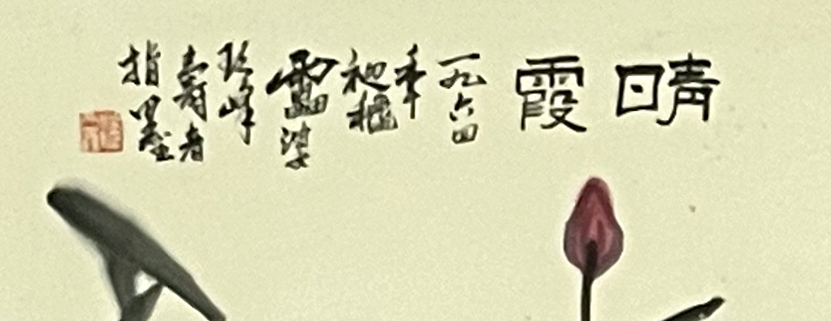 晴霞
一九六四
年
雷婆
頭峰
壽者
指墨